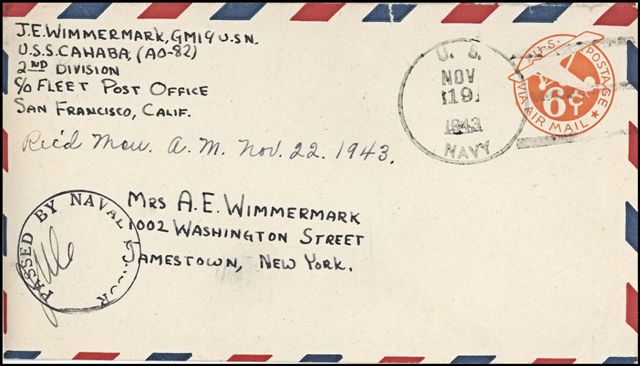 J.E. WIMMERMARK, GM19 U.S.N.
U.S.S. CAHABA, (AO-82)
2ND DIVISION
c/o FLEET POST OFFICE
SAN FRANCISCO, CALIF.
U. S.
NOV
19
1943
NAVY
U.S. POSTAGE
6¢
VIA AIR MAIL
Rec'd Mon. A.M. Nov. 22. 1943.
MRS A.E. WIMMERMARK
1002 WASHINGTON STREET
JAMESTOWN, NEW YORK.
PASSED BY NAVAL